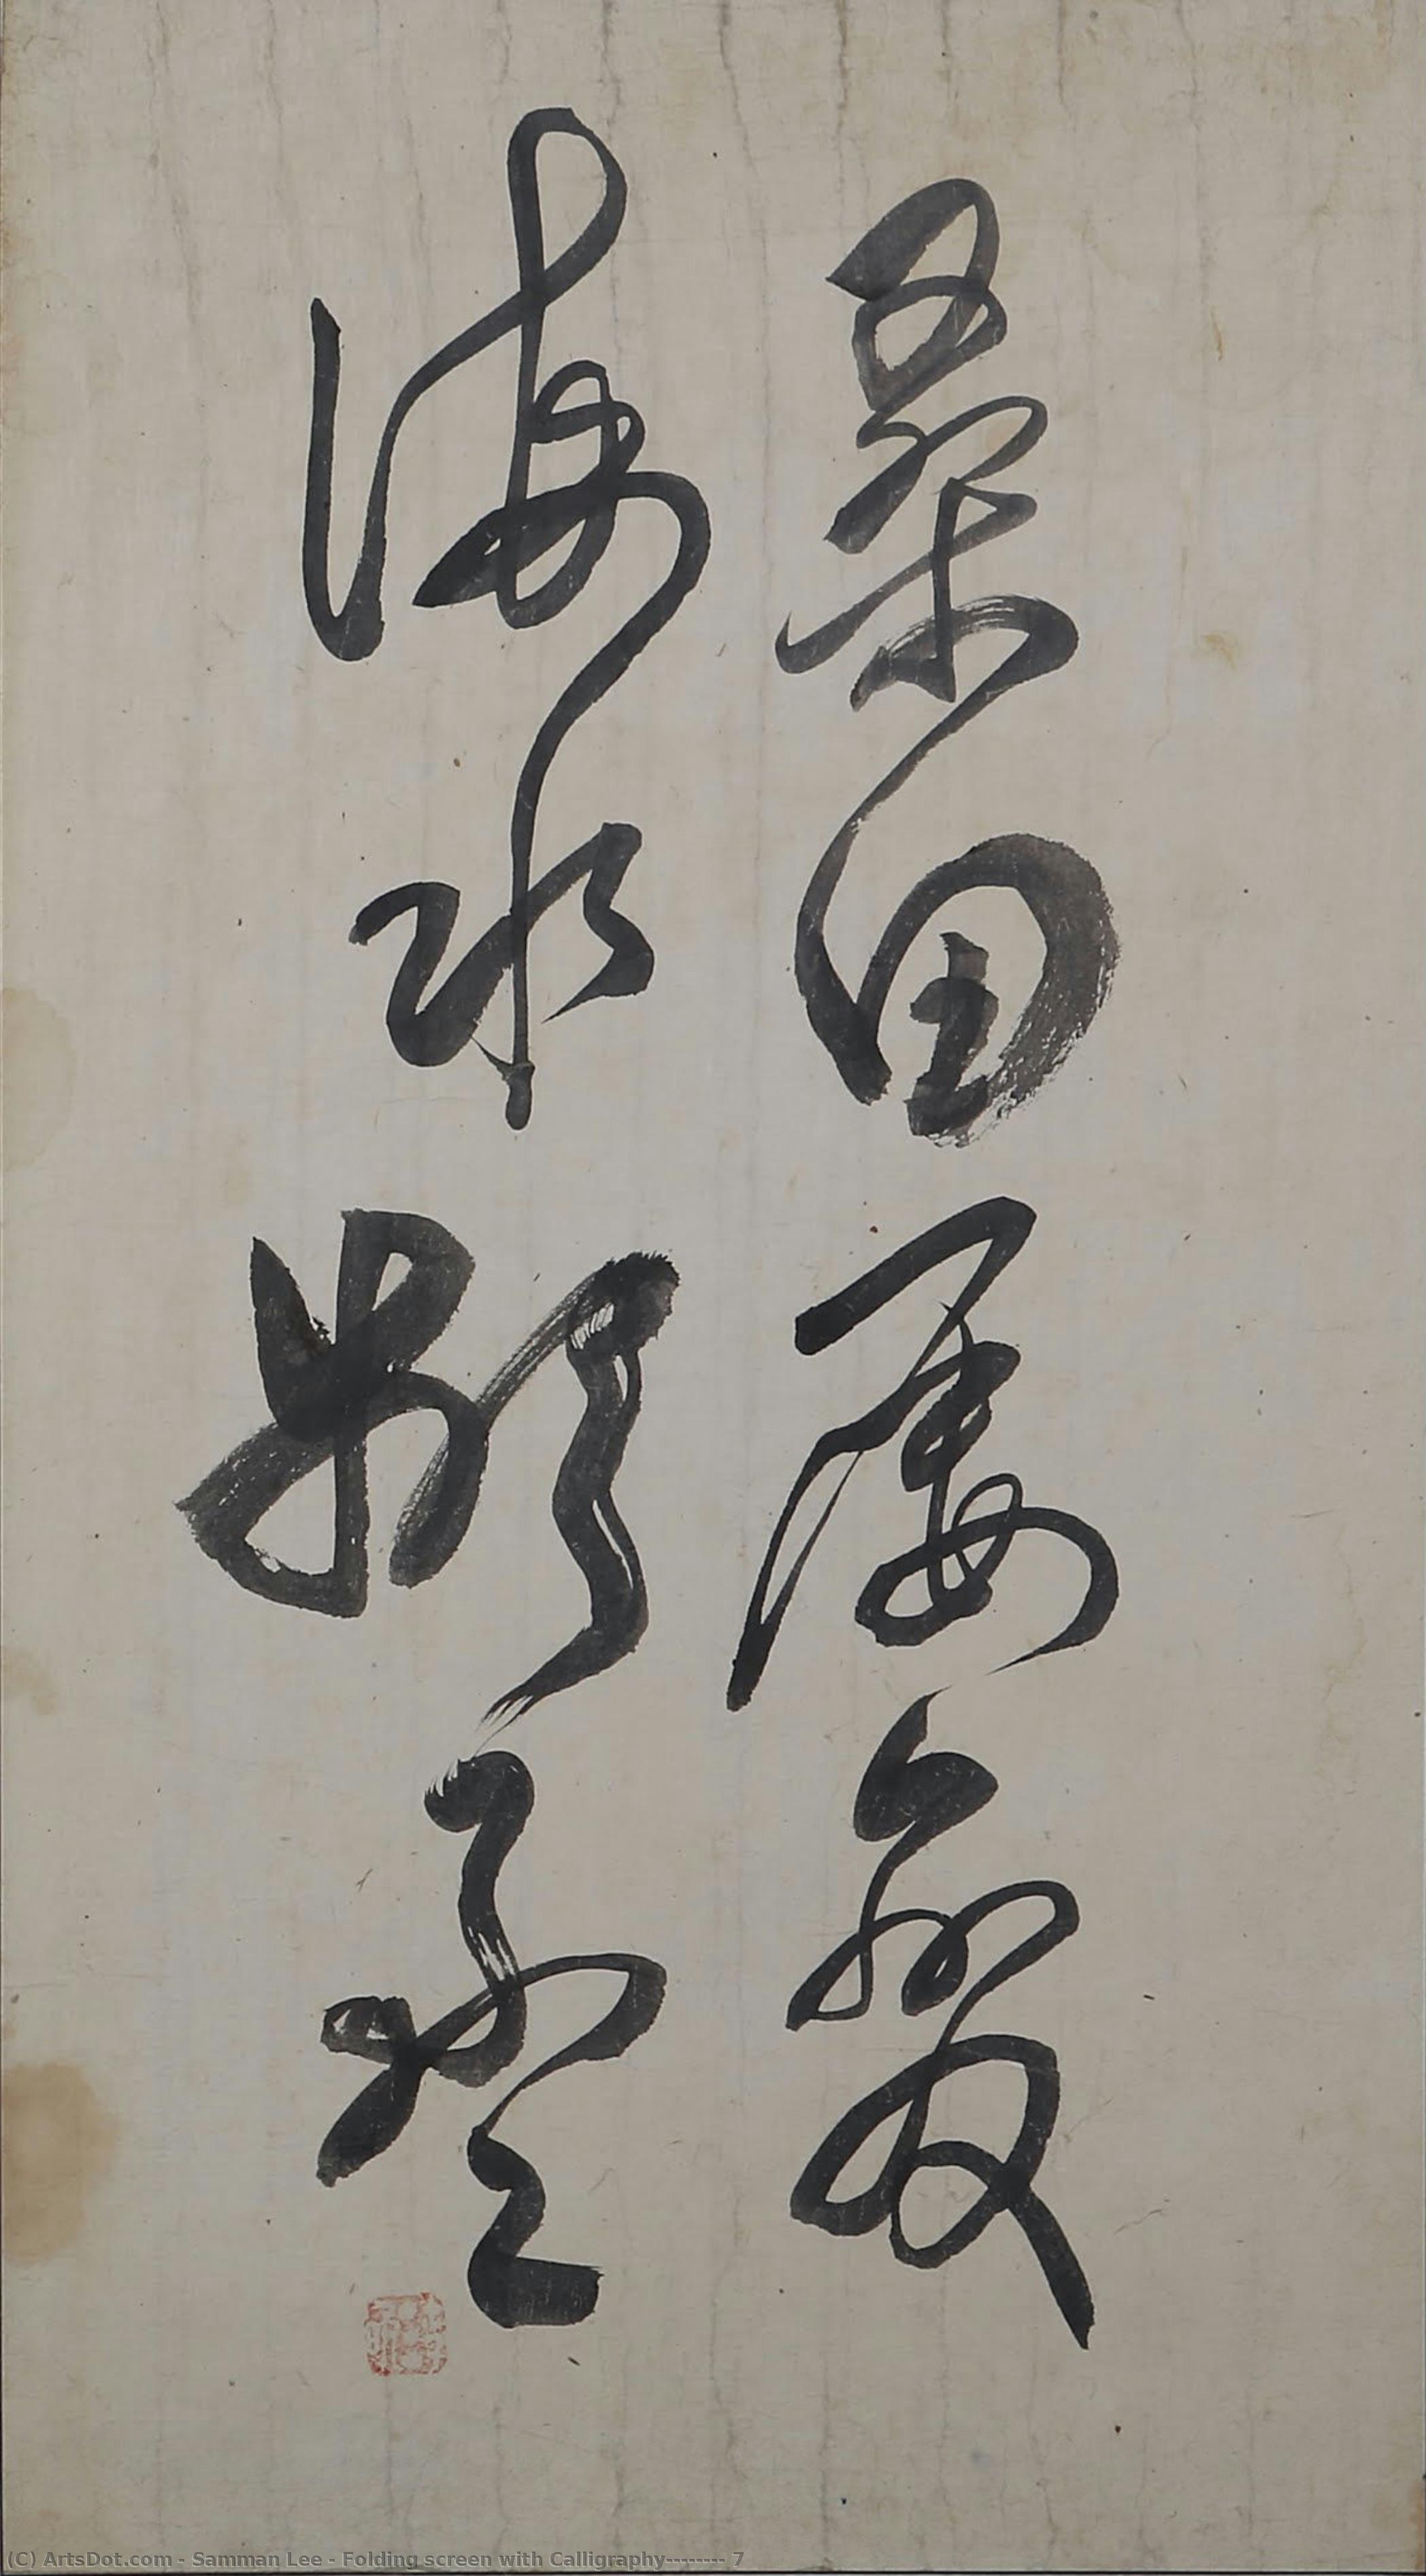 桑田屢變
海水頻
(C) ArtsDot.com - Samman Lee - Folding screen with Calligraphy-------- 7